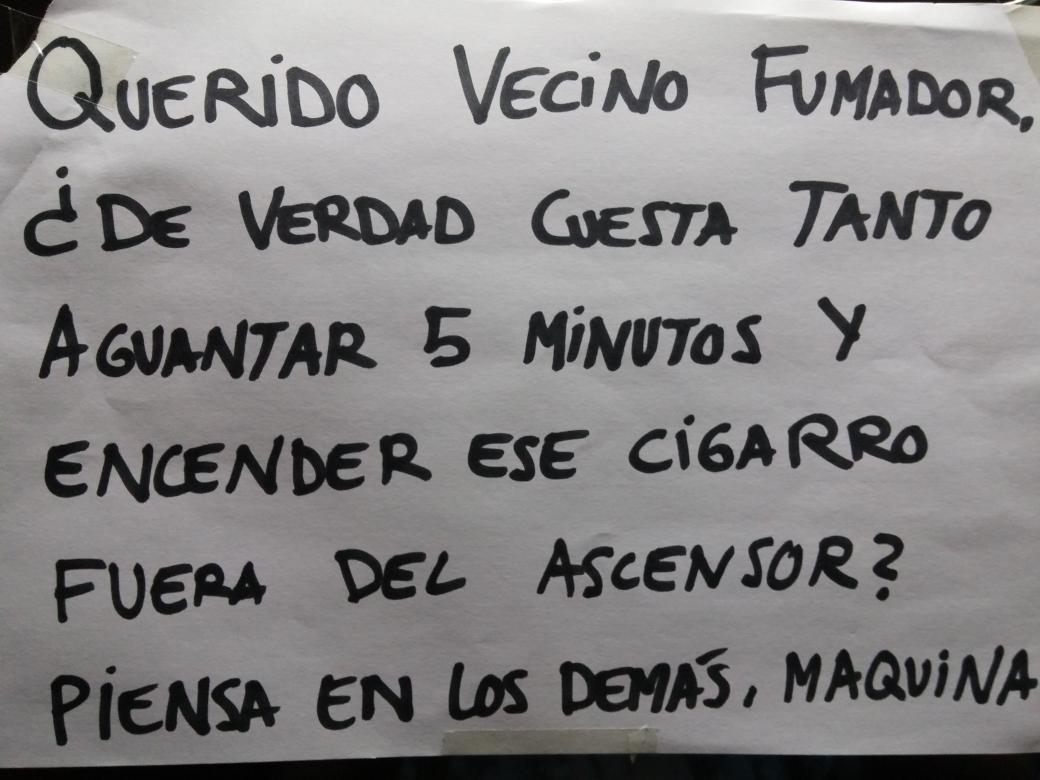 QUERIDO VECINO FUMADOR,
¿DE VERDAD CUESTA TANTO
AGUANTAR 5 MINUTOS Y
ENCENDER ESE CIGARRO
FUERA DEL ASCENSOR?
PIENSA EN LOS DEMÁS, MAQUINA